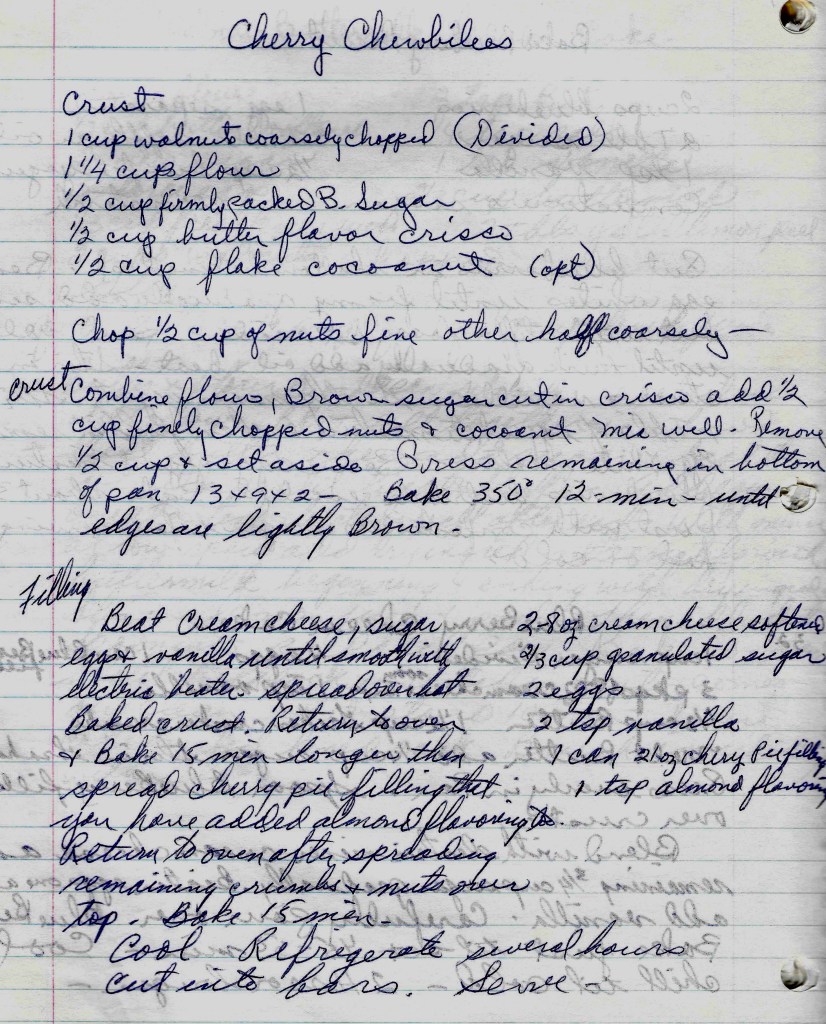 Cherry Chewbilees
Crust
1 cup walnuts coarsely chopped (Divided)
1 1/4 cups flour
1/2 cup firmly packed B. Sugar
1/2 cup butter flavor crisco
1/2 cup flake cocoanut (opt)
Chop 1/2 cup of nuts fine other half coarsely —
crust Combine flour, Brown sugar cut in crisco add 1/2
cup finely chopped nuts & cocoanut mix well - Remove
1/2 cup & set aside Press remaining in bottom
of pan 13x9x2 - Bake 350° 12-min - until
edges are lightly Brown -
Filling
Beat creamcheese, sugar
eggs & vanilla until smooth with
electric beater. spread over hot
Baked crust. Return to oven
& Bake 15 min longer then
spread cherry pie filling that
you have added almond flavoring to.
Return to oven after spreading
remaining crumbs & nuts over
top. Bake 15 min -
Cool Refrigerate several hours
cut into bars. Serve -
2-8 oz creamcheese softened
2/3 cup granulated sugar
2 eggs
2 tsp vanilla
1 can 21 oz chery Pie filling
1 tsp almond flavoring